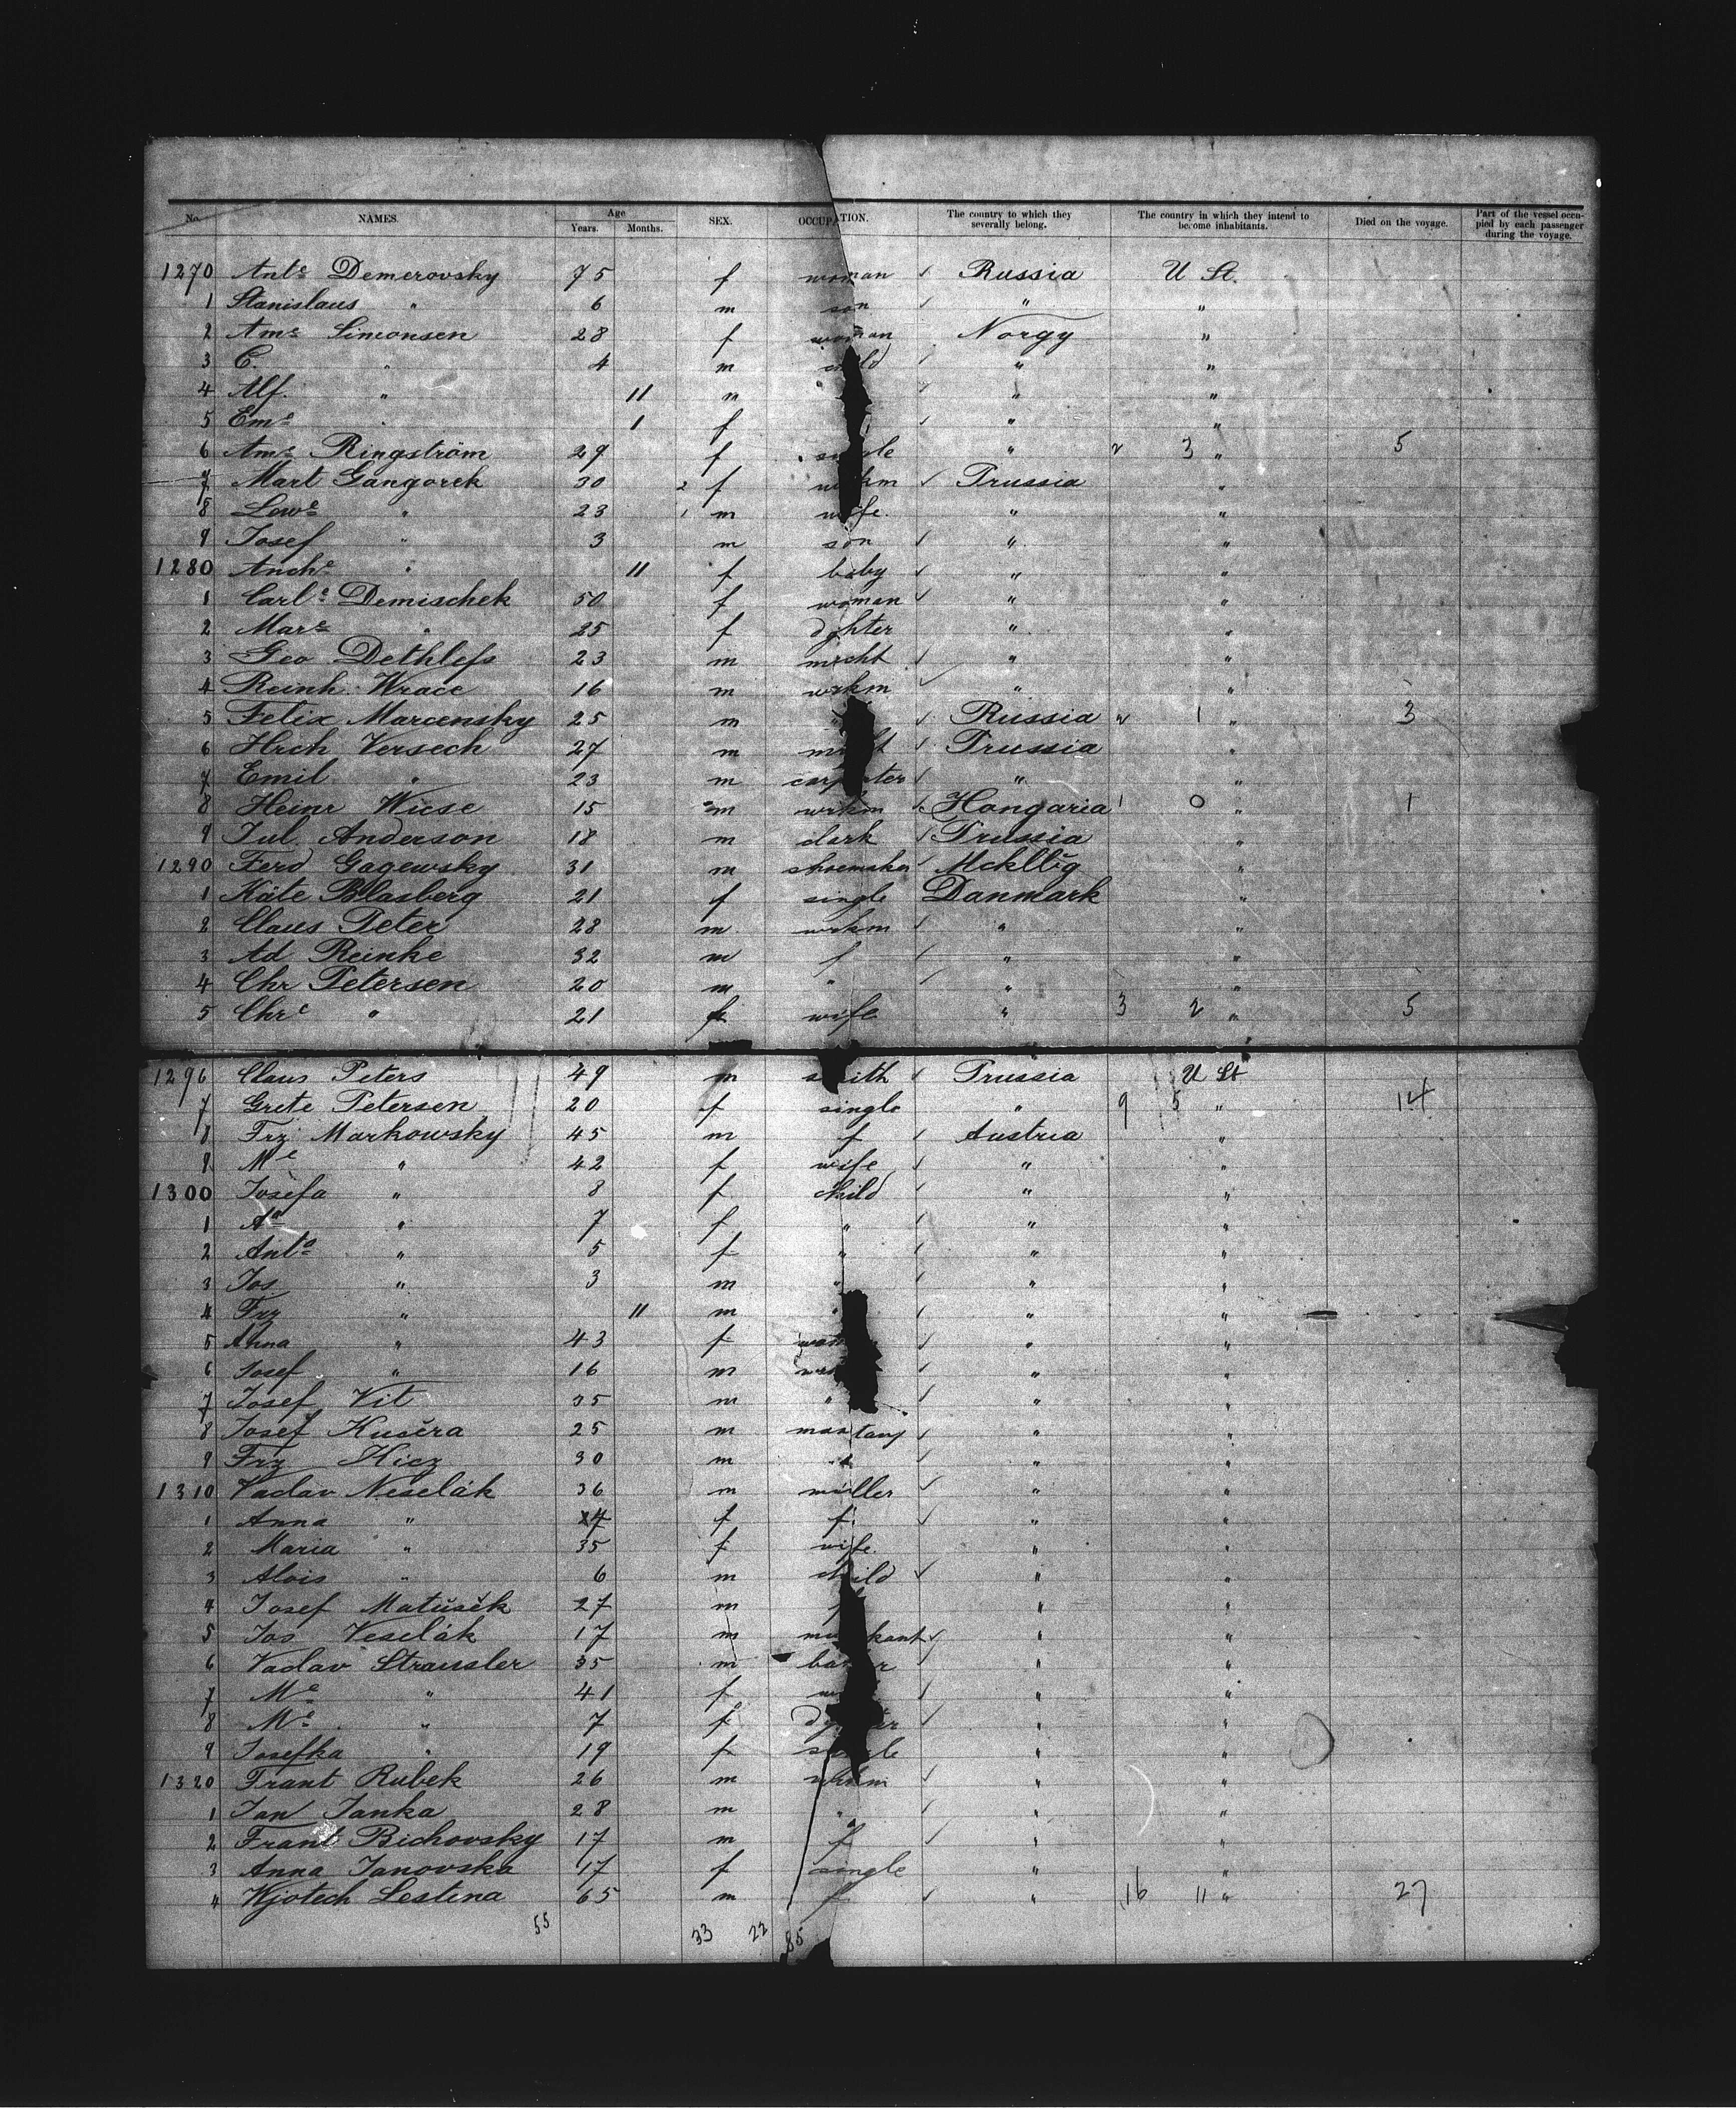 No. NAMES. Age Years. Months. SEX. OCCUPATION. The country to which they severally belong. The country in which they intend to become inhabitants. Died on the voyage. Part of the vessel occupied by each passenger during the voyage.
1270 Ante Demerovsky 75 f woman ✓ Russia U St.
1 Stanislaus " 6 m son ✓ " "
2 Ame Simonsen 28 f woman Norgy "
3 C. " 4 m child ✓ " "
4 Alf. " 11 m ✓ " "
5 Eme " 1 f ✓ " "
6 Ame Ringström 29 f single " 2 3 " 5
7 Mart Gangorek 30 2 f wrkm ✓ Prussia "
8 Lowe " 23 1 m wife " "
9 Josef " 3 m son ✓ " "
1280 Anche " 11 f baby ✓ " "
1 Carle Demischek 50 f woman ✓ " "
2 Mare " 25 f dghter " "
3 Geo Dethlefs 23 m mrcht ✓ " "
4 Reinh. Wrace 16 m wrkm ✓ " "
5 Felix Marcensky 25 m " ✓ Russia 2 1 " 3
6 Hrch Versech 27 m ✓ Prussia "
7 Emil " 23 m carpenter ✓ " "
8 Heinr Wiese 15 m wrkm ✓ Hongaria 1 0 " 1
9 Jul. Anderson 18 m clerk ✓ Prussia "
1290 Ferd Gagewsky 31 m shoemaker ✓ Mckllbg "
1 Käte Blasberg 21 f single Danmark "
2 Claus Peter 28 m wrkm ✓ " "
3 Ad Reinke 32 m f ✓ " "
4 Chr Petersen 20 m " ✓ " "
5 Chre " 21 f wife " 3 2 " 5
1296 Claus Peters 49 m smith ✓ Prussia U St
7 Grete Petersen 20 f single " 9 5 " 14
8 Frz Markowsky 45 m f ✓ Austria "
9 Me " 42 f wife ✓ " "
1300 Josefa " 8 f child ✓ " "
1 Aa " 7 f " ✓ " "
2 Anta " 5 f " ✓ " "
3 Jos " 3 m " ✓ " "
4 Frz " 11 m " ✓ " "
5 Anna " 43 f woman ✓ " "
6 Josef " 16 m ✓ " "
7 Josef Vit 35 m " ✓ " "
8 Josef Kučera 25 m ✓ " "
9 Frz Kicz 30 m " ✓ " "
1310 Vaclav Neselák 36 m müller ✓ " "
1 Anna " f f ✓ " "
2 Maria " 35 f wife " "
3 Alois " 6 m child ✓ " "
4 Josef Matušek 27 m f " "
5 Jos Veselák 17 m ✓ " "
6 Vaclav Straussler 35 m ✓ " "
7 Me " 41 f ✓ " "
8 Me " 7 f ✓ " "
9 Josefka " 19 f single " "
1320 Frant Rubek 26 m wrkm ✓ " "
1 Jan Janka 28 m " ✓ " "
2 Frant Bichovsky 17 m f ✓ " "
3 Anna Janovska 17 f single " "
4 Wjotech Lestina 65 m f ✓ " 16 11 " 27
55 33 22